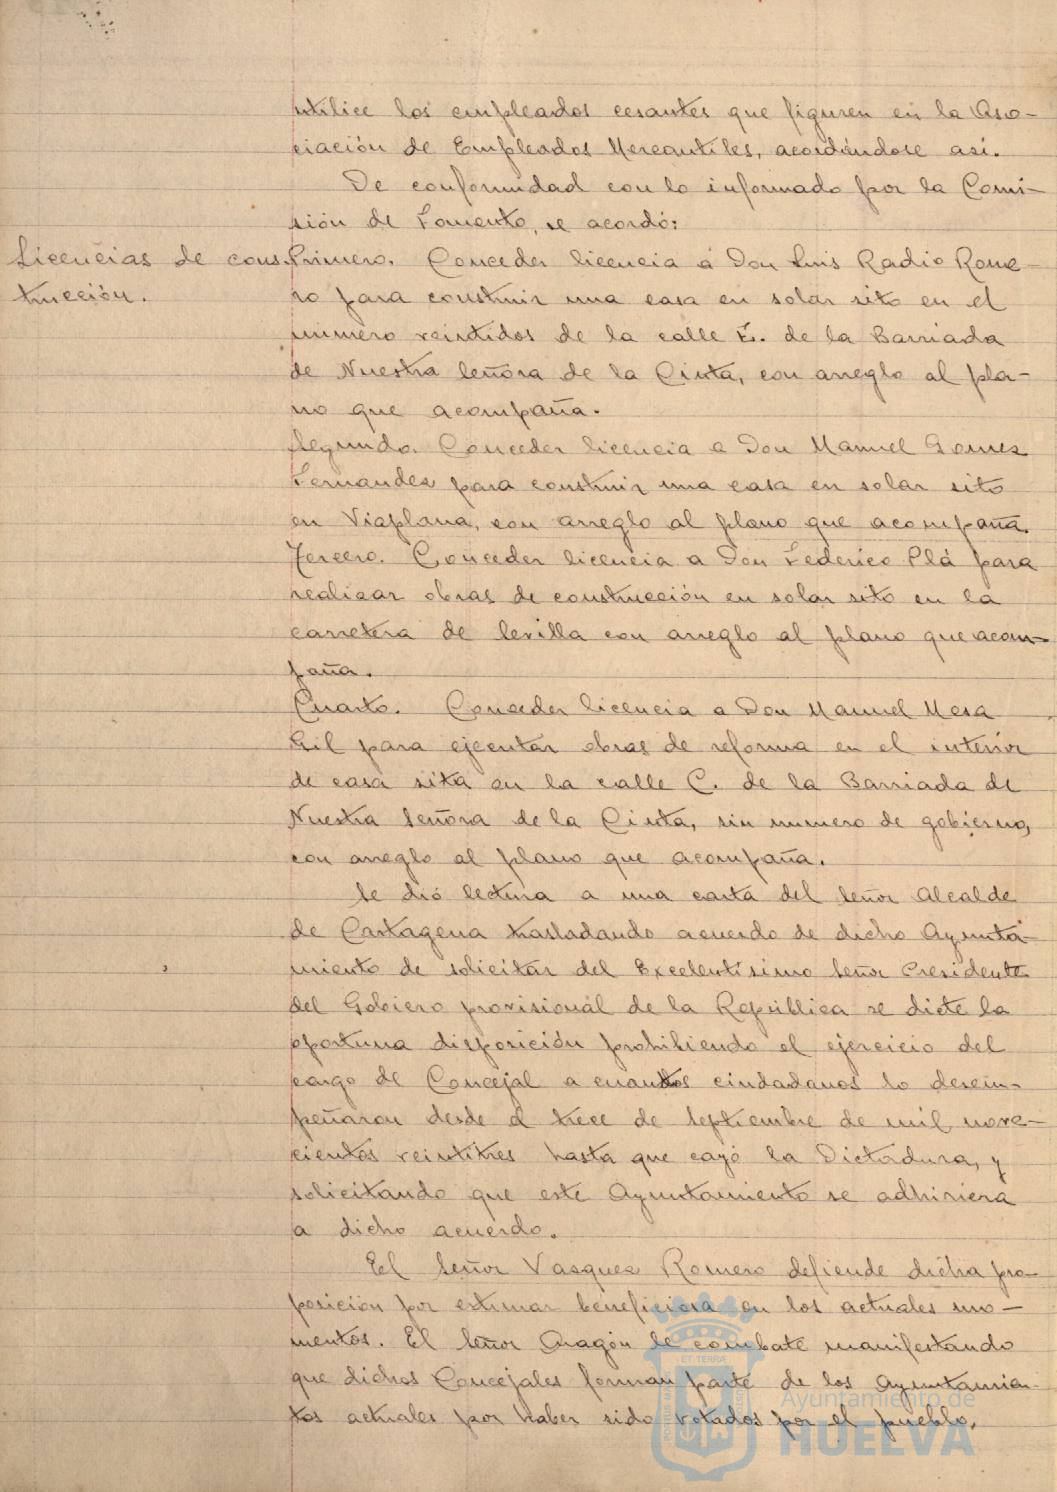 utilice los empleados cesantes que figuren en la Aso-
ciación de Empleados Mercantiles, acordándose así.
De conformidad con lo informado por la Comi-
sión de Fomento, se acordó:
Licencias de cons-
trucción.
Primero. Conceder licencia a Don Luis Radio Rome-
ro para construir una casa en solar sito en el
número veintidos de la calle E. de la Barriada
de Nuestra Señora de la Cinta, con arreglo al pla-
no que acompaña.
Segundo. Conceder licencia a Don Manuel Gomez
Fernandez para construir una casa en solar sito
en Viaplana, con arreglo al plano que acompaña.
Tercero. Conceder licencia a Don Federico Plá para
realizar obras de construcción en solar sito en la
carretera de Sevilla con arreglo al plano que acom-
paña.
Cuarto. Conceder licencia a Don Manuel Mesa
Gil para ejecutar obras de reforma en el interior
de casa sita en la calle C. de la Barriada de
Nuestra Señora de la Cinta, sin numero de gobierno,
con arreglo al plano que acompaña.
Se dió lectura a una carta del Señor Alcalde
de Cartagena trasladando acuerdo de dicho Ayunta-
miento de solicitar del Excelentísimo Señor Presidente
del Gobiero provisional de la República se dicte la
oportuna disposición prohibiendo el ejercicio del
cargo de Concejal a cuantos ciudadanos lo desem-
peñaron desde el trece de Septiembre de mil nove-
cientos veintitres hasta que cayó la Dictadura, y
solicitando que este Ayuntamiento se adhiriera
a dicho acuerdo.
El Señor Vasquez Romero defiende dicha pro-
posición por estimar beneficiosa en los actuales mo-
mentos. El Señor Aragón le combate manifestando
que dichos Concejales forman parte de los Ayuntamien-
tos actuales por haber sido votados por el pueblo,
ET TERRA
Ayuntamiento de
HUELVA